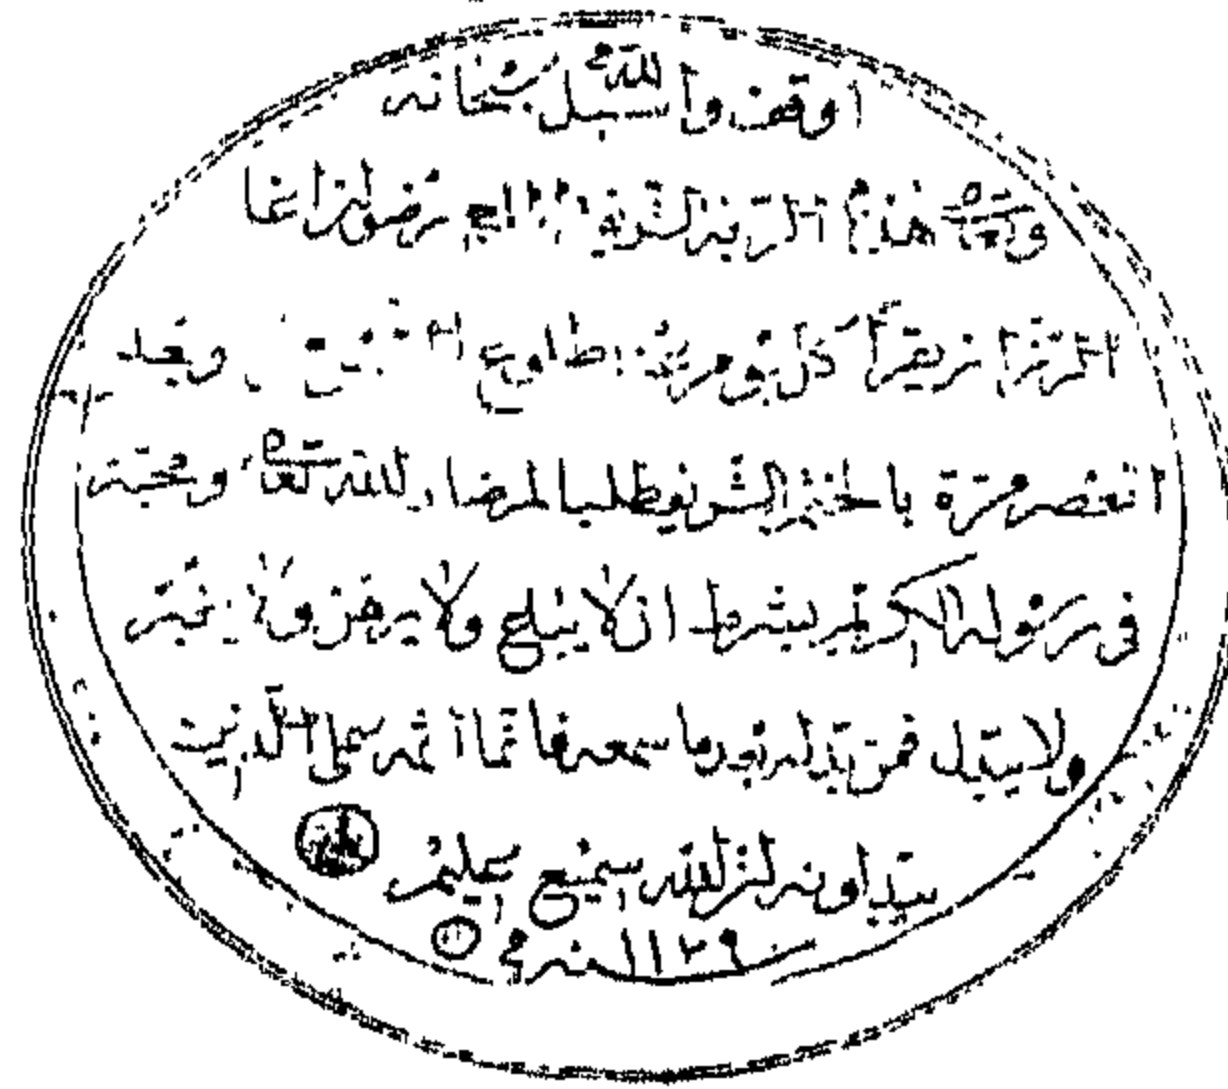 اوقف واسبل لله سبحانه
وتعالى هذه الربعة الشريفة الحاج رضوان اغا
الرزاز يقرأ كل يوم بعد طلوع الشمس وبعد
العصر مرة بالختم الشريف طلبا لمرضاه لله تعالى ومحبة
في رسوله الكريم بشرط ان لا يباع ولا يرهن ولا يغير
ولا يبدل فمن بدله بعدما سمعه فانما اثمه على الذين
يبدلونه ان الله سميع عليم
سنة ١١٢٩